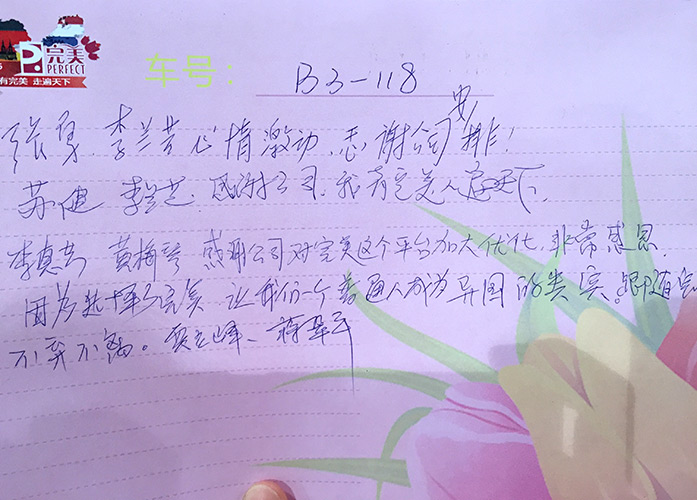 完美
PERFECT
有完美 走遍天下
车号： B3-118
张 李兰芳 心情激动，感谢公司安排！
苏健 李兰芝 感谢公司，我有完美人走天下
李真芳 黄梅琴 感谢公司对完美这个平台加大优化，非常感恩
因为选择了完美 让我们一个普通人成为异国的贵宾，跟随完
不弃不离。